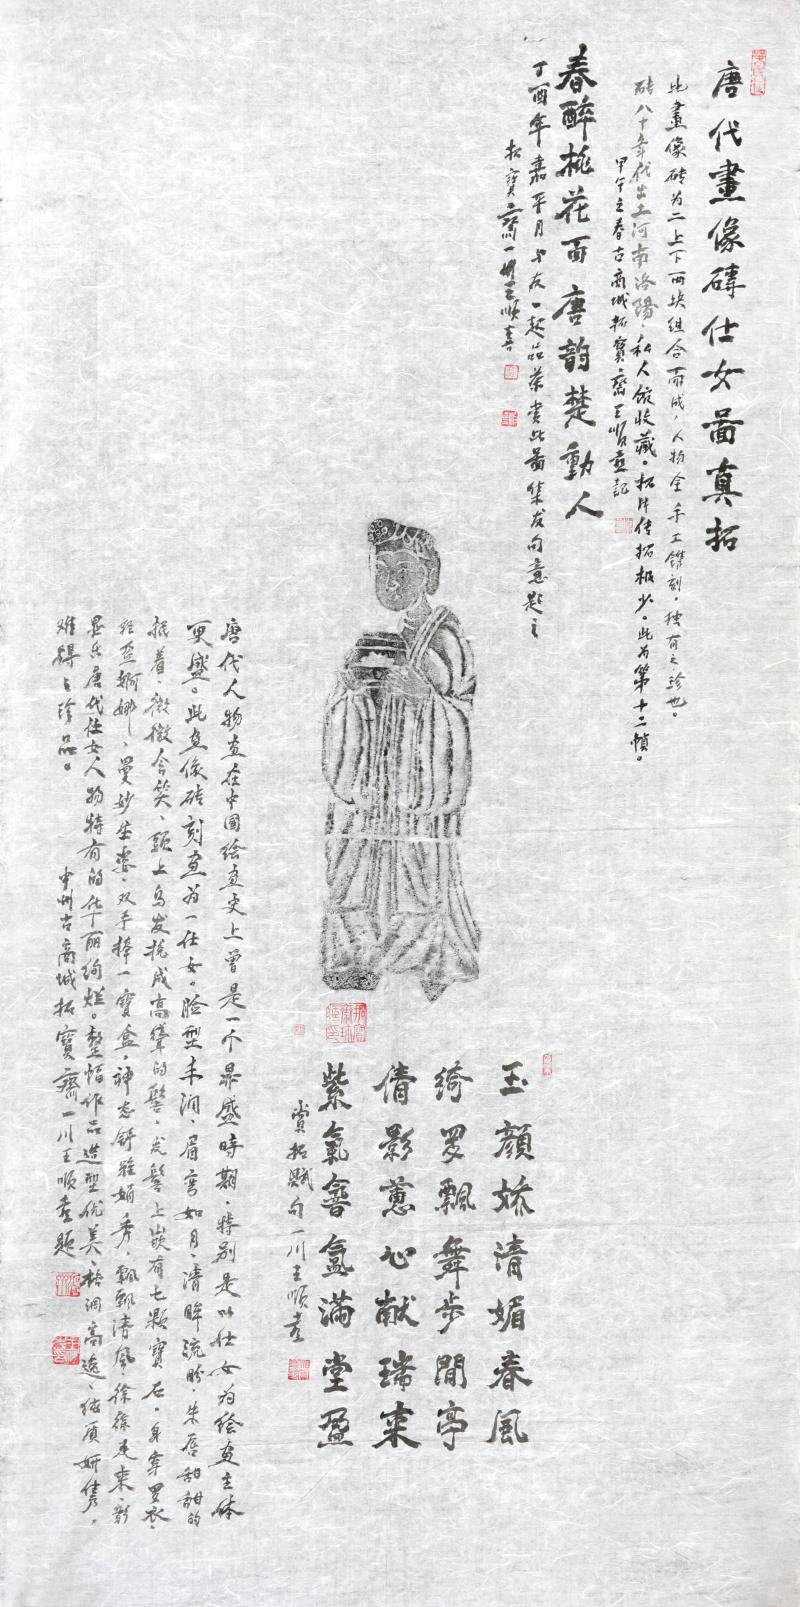 唐代畫像磚仕女圖真拓
此畫像砖为二上下两块组合而成，人物全手工鐫刻，独有之珍也。
砖八十年代出土河南洛陽，私人館收藏。拓片传拓极少。此为第十二幀。
甲午立春古商城拓寶齋王順喜記
春醉桃花面唐韵楚動人
丁酉年嘉平月与友一起品茶赏此圖集友句意题之
拓寶齋一川王順喜
玉顏嬌清媚春風
綺羅飄舞步閒亭
倩影蕙心献瑞来
紫氣氤氳满堂盈
赏拓赋句一川王順喜
唐代人物画在中國绘画史上曾是一个鼎盛時期，特别是以仕女为绘画主体
更盛。此画像砖刻画为一仕女。脸型丰润、眉弯如月、清眸流盼、朱唇甜甜的
抿着、微微含笑、頭上乌发挽成高聳的髻，发髻上嵌有七颗寶石。身穿罗衣、
轻盈婀娜、曼妙生姿、双手捧一寶盒，神态舒雅娟秀，飘飘清風，徐徐走来，彰
显出唐代仕女人物特有的华丽绚烂。整幅作品造型优美、格调高逸、质妍隽，
难得之珍品。
中州古商城拓寶齋一川王順喜题